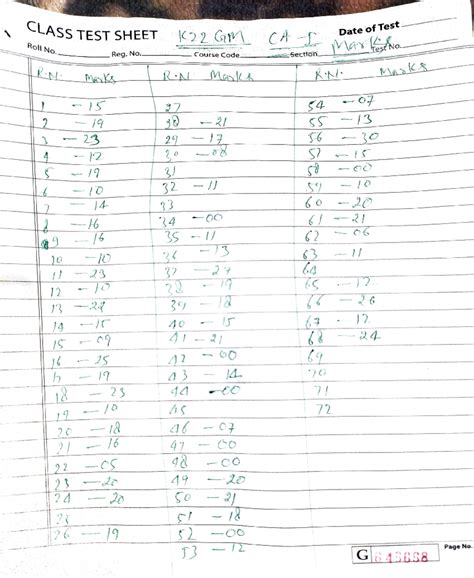 CLASS TEST SHEET K22GM CA-I Marks
Date of Test
Roll No. Reg. No. Course Code Section Test No.
R.N. Marks
1 - 15
2 - 19
3 - 23
4 - 12
5 - 19
6 - 10
7 - 14
8 - 16
9 - 16
10 - 10
11 - 23
12 - 10
13 - 22
14 - 15
15 - 09
16 - 25
17 - 19
18 - 23
19 - 10
20 - 18
21 - 16
22 - 05
23 - 20
24 - 20
25
26 - 19
R.N Marks
27
28 - 21
29 - 17
30 - 08
31
32 - 11
33
34 - 00
35 - 11
36 - 13
37 - 27
38 - 19
39 - 18
40 - 15
41 - 21
42 - 00
43 - 14
44 - 00
45
46 - 07
47 - 00
48 - 00
49 - 20
50 - 21
51 - 18
52 - 00
53 - 12
R.N. Marks
54 - 07
55 - 13
56 - 30
57 - 15
58 - 00
59 - 10
60 - 20
61 - 21
62 - 06
63 - 11
64
65 - 12
66 - 26
67 - 12
68 - 24
69
70
71
72
Page No.
G